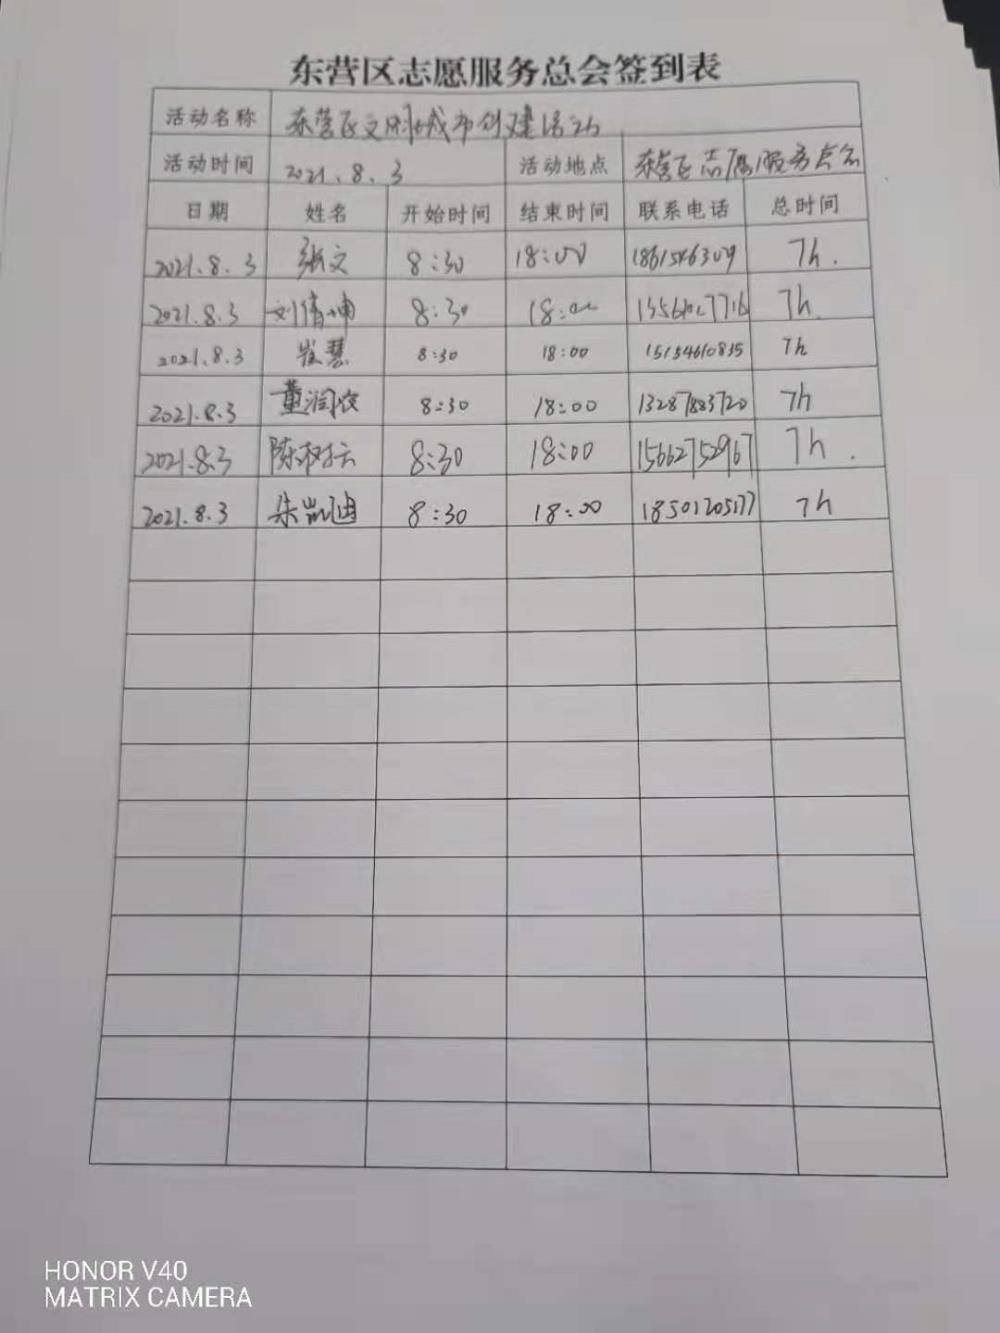 东营区志愿服务总会签到表
活动名称 东营区文明城市创建活动
活动时间 2021.8.3 活动地点 东营区志愿服务总会
日期 姓名 开始时间 结束时间 联系电话 总时间
2021.8.3 张文 8:30 18:00 1861546309 7h.
2021.8.3 刘倩坤 8:30 18:00 7h.
2021.8.3 崔慧 8:30 18:00 15154610835 7h
2021.8.3 董润农 8:30 18:00 13287883720 7h
2021.8.3 陈树云 8:30 18:00 15662752967 7h.
2021.8.3 朱凯迪 8:30 18:00 18501205177 7h
HONOR V40
MATRIX CAMERA